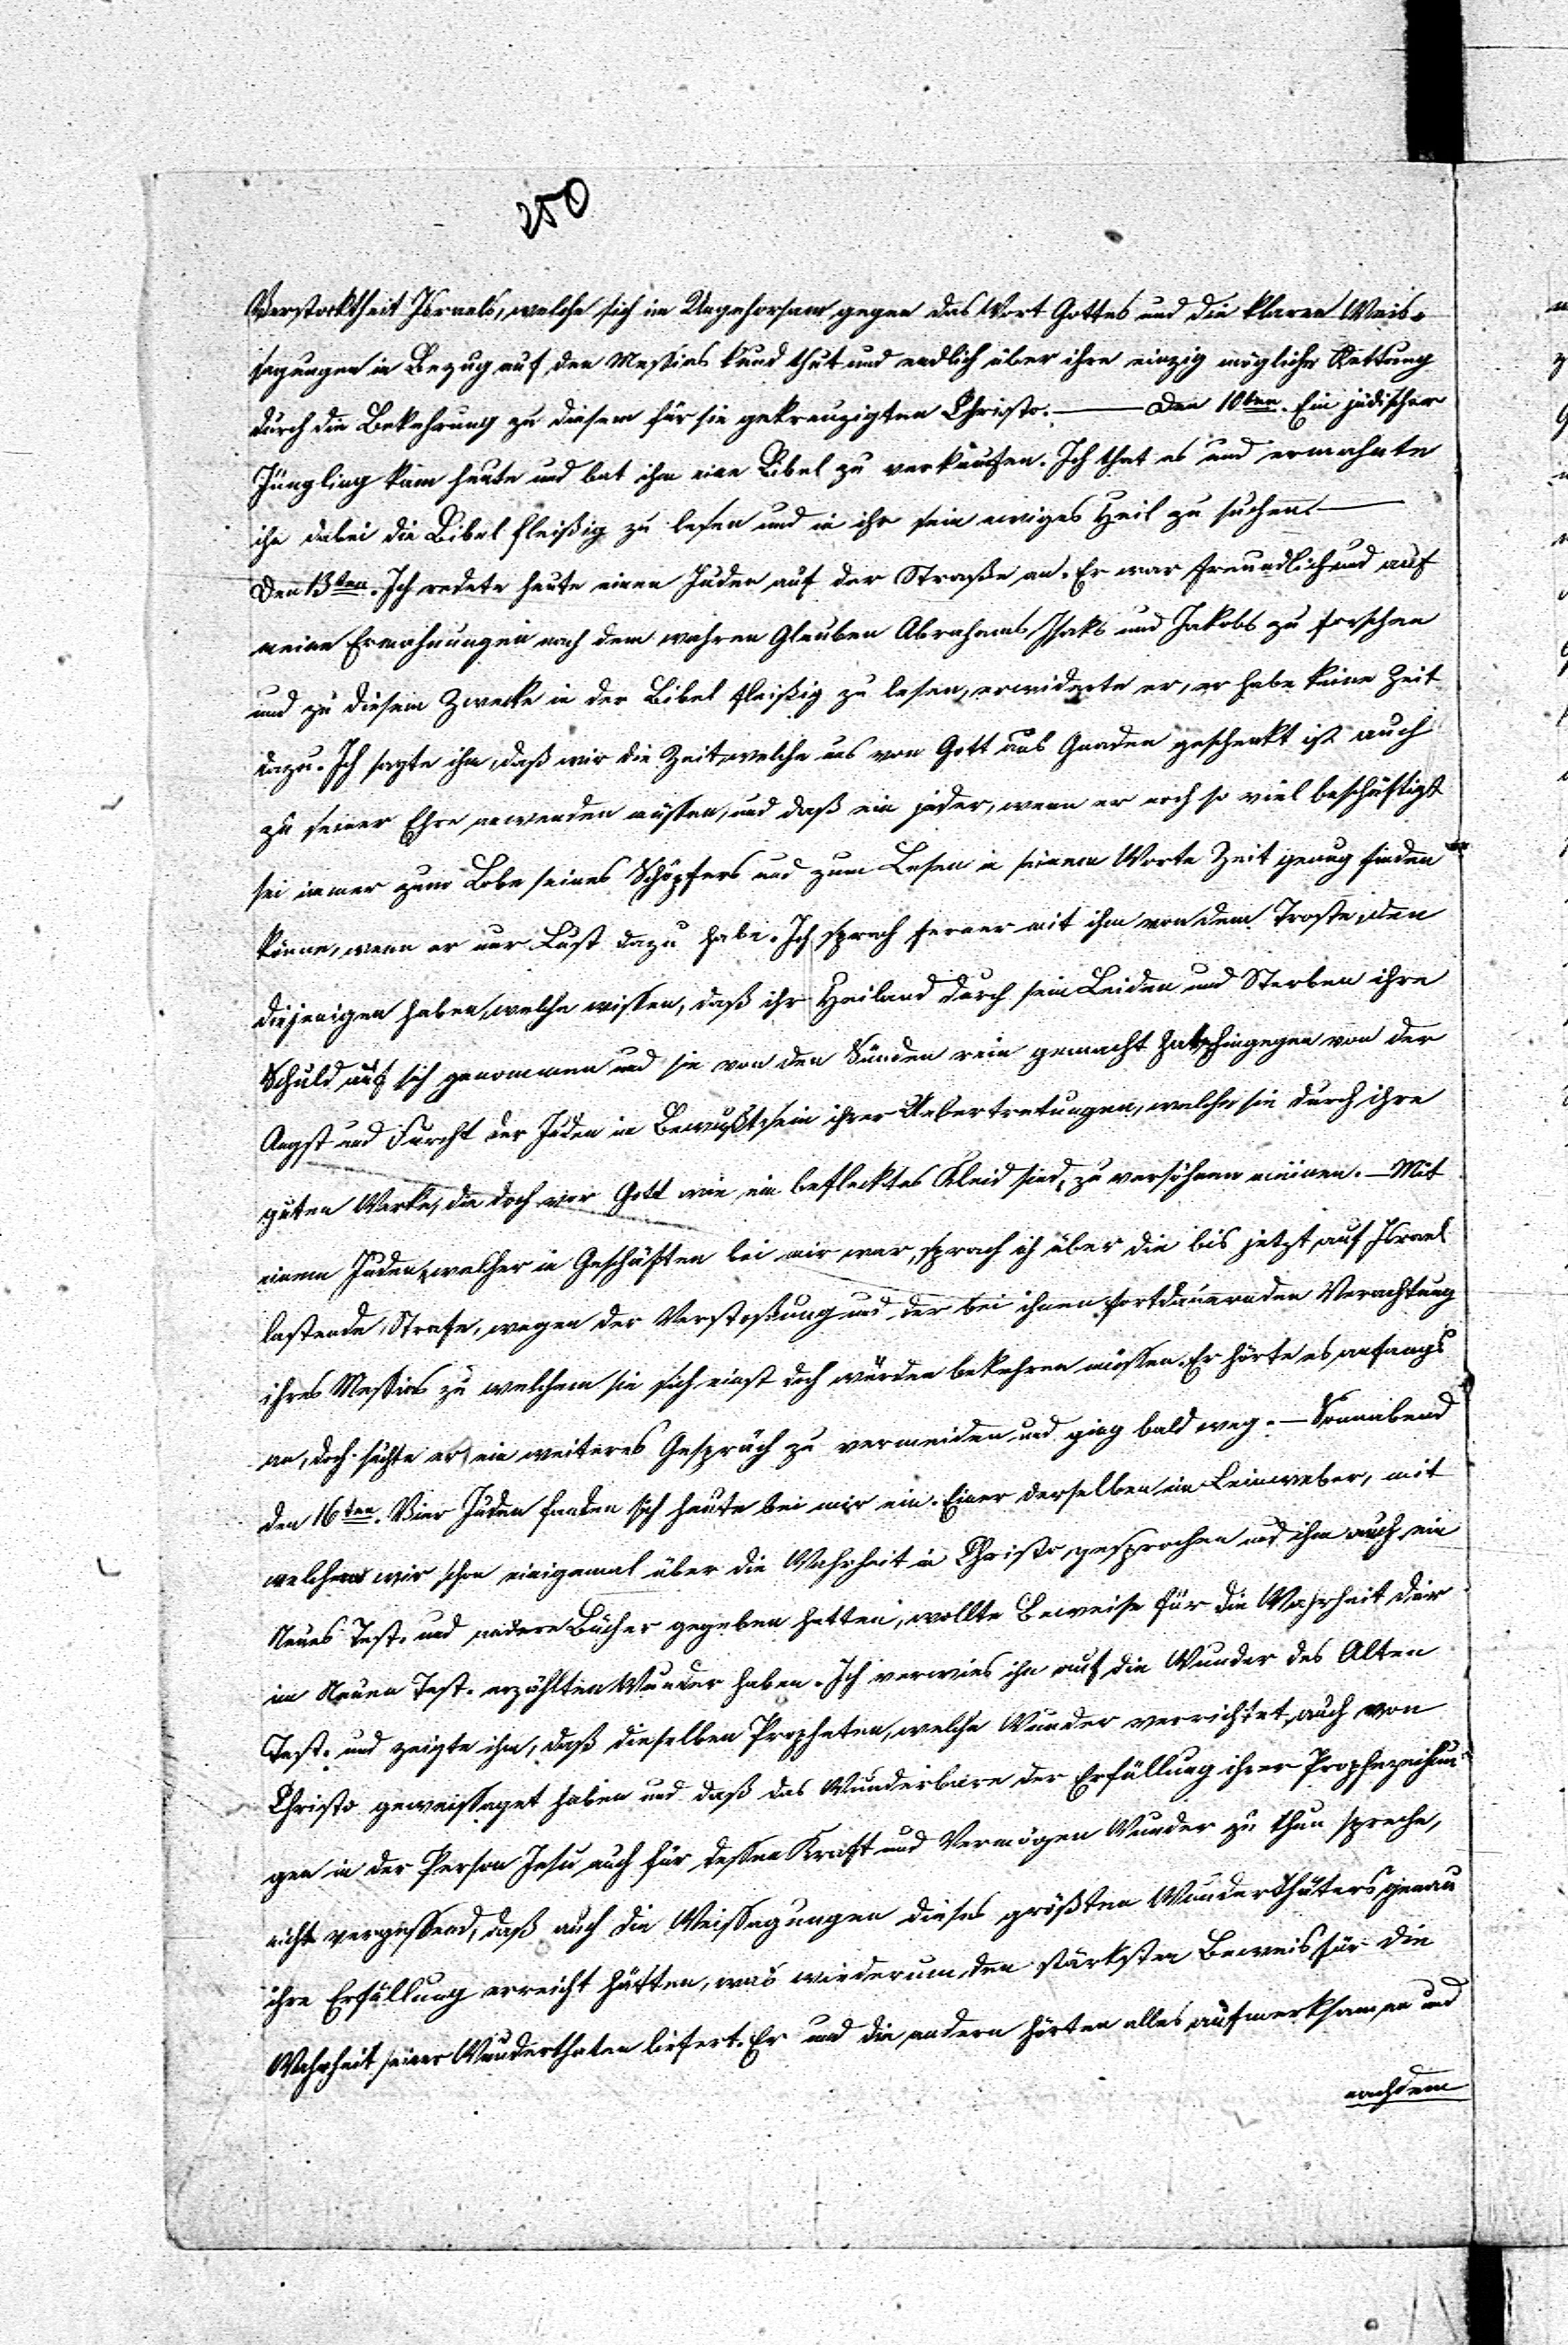 250
Verstocktheit Israels, welche sich im Ungehorsam gegen das Wort Gottes und die klaren Weis-
sagungen in Bezug auf den Messias kund thut und endlich über ihre einzig mögliche Rettung
durch die Bekehrung zu diesem für sie gekreuzigten Christo. — Den 10ten. Ein jüdischer
Jüngling kam heute und bat ihm eine Bibel zu verkaufen. Ich that es und ermahnte
ihn dabei die Bibel fleißig zu lesen und in ihr sein ewiges Heil zu suchen. —
Den 13ten. Ich redete heute einen Juden auf der Straße an. Er war freundlich und auf
meine Ermahnungen nach dem wahren Glauben Abrahams, Isaks und Jakobs zu forschen
und zu diesem Zwecke in der Bibel fleißig zu lesen, erwiderte er, er habe keine Zeit
dazu. Ich sagte ihm, daß wir die Zeit, welche uns von Gott aus Gnaden geschenkt ist auch
zu seiner Ehre anwenden müssen, und daß ein jeder, wenn er noch so viel beschäftigt
sei immer zum Lobe seines Schöpfers und zum Lesen in seinem Worte Zeit genug finden
könne, wenn er nur Lust dazu habe. Ich sprach ferner mit ihm von dem Troste, den
diejenigen haben, welche wissen, daß ihr Heiland durch sein Leiden und Sterben ihre
Schuld auf sich genommen und sie von den Sünden rein gemacht hat, hingegen von der
Angst und Furcht der Juden im Bewußtsein ihrer Uebertretungen, welche sie durch ihre
guten Werke, die doch vor Gott wie ein beflecktes Kleid sind, zu versöhnen meinen. — Mit
einem Juden, welcher in Geschäften bei mir war, sprach ich über die bis jetzt auf Israel
lastende Strafe, wegen der Verstoßung und der bei ihnen fortdauernden Verachtung
ihres Messias zu welchem sie sich einst doch würden bekehren müssen. Er hörte es anfangs
an, doch suchte er, ein weiteres Gespräch zu vermeiden und ging bald weg. — Sonnabend
den 16ten. Vier Juden fanden sich heute bei mir ein. Einer derselben ein Leinweber, mit
welchem wir schon einigemal über die Wahrheit in Christo gesprochen und ihm auch ein
Neues Test. und andere Bücher gegeben hatten, wollte Beweise für die Wahrheit der
im Neuen Test. erzählten Wunder haben. Ich verwies ihn auf die Wunder des Alten
Test. und zeigte ihm, daß dieselben Propheten, welche Wunder verrichtet, auch von
Christo geweissaget haben und daß das Wunderbare der Erfüllung ihrer Prophezeihun-
gen in der Person Jesu auch für dessen Kraft und Vermögen Wunder zu thun spreche,
nicht vergessend, daß auch die Weissagungen dieses größten Wunderthäters genau
ihre Erfüllung erreicht hätten, was wiederum den stärksten Beweis für die
Wahrheit seiner Wunderthaten liefert. Er und die andern hörten alles aufmerksam an und
nachdem